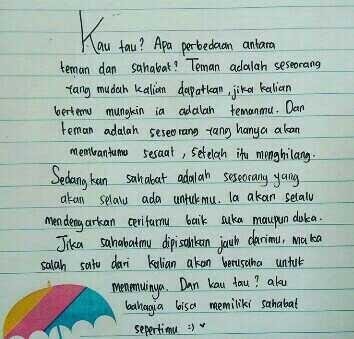 Kau tau? Apa perbedaan antara
teman dan sahabat? Teman adalah seseorang
yang mudah kalian dapatkan, jika kalian
bertemu mungkin ia adalah temanmu. Dan
teman adalah seseorang yang hanya akan
membantumu sesaat, setelah itu menghilang.
Sedangkan sahabat adalah seseorang yang
akan selalu ada untukmu. Ia akan selalu
mendengarkan ceritamu baik suka maupun duka.
Jika sahabatmu dipisahkan jauh darimu, maka
salah satu dari kalian akan berusaha untuk
menemuinya. Dan kau tau? aku
bahagia bisa memiliki sahabat
sepertimu :)